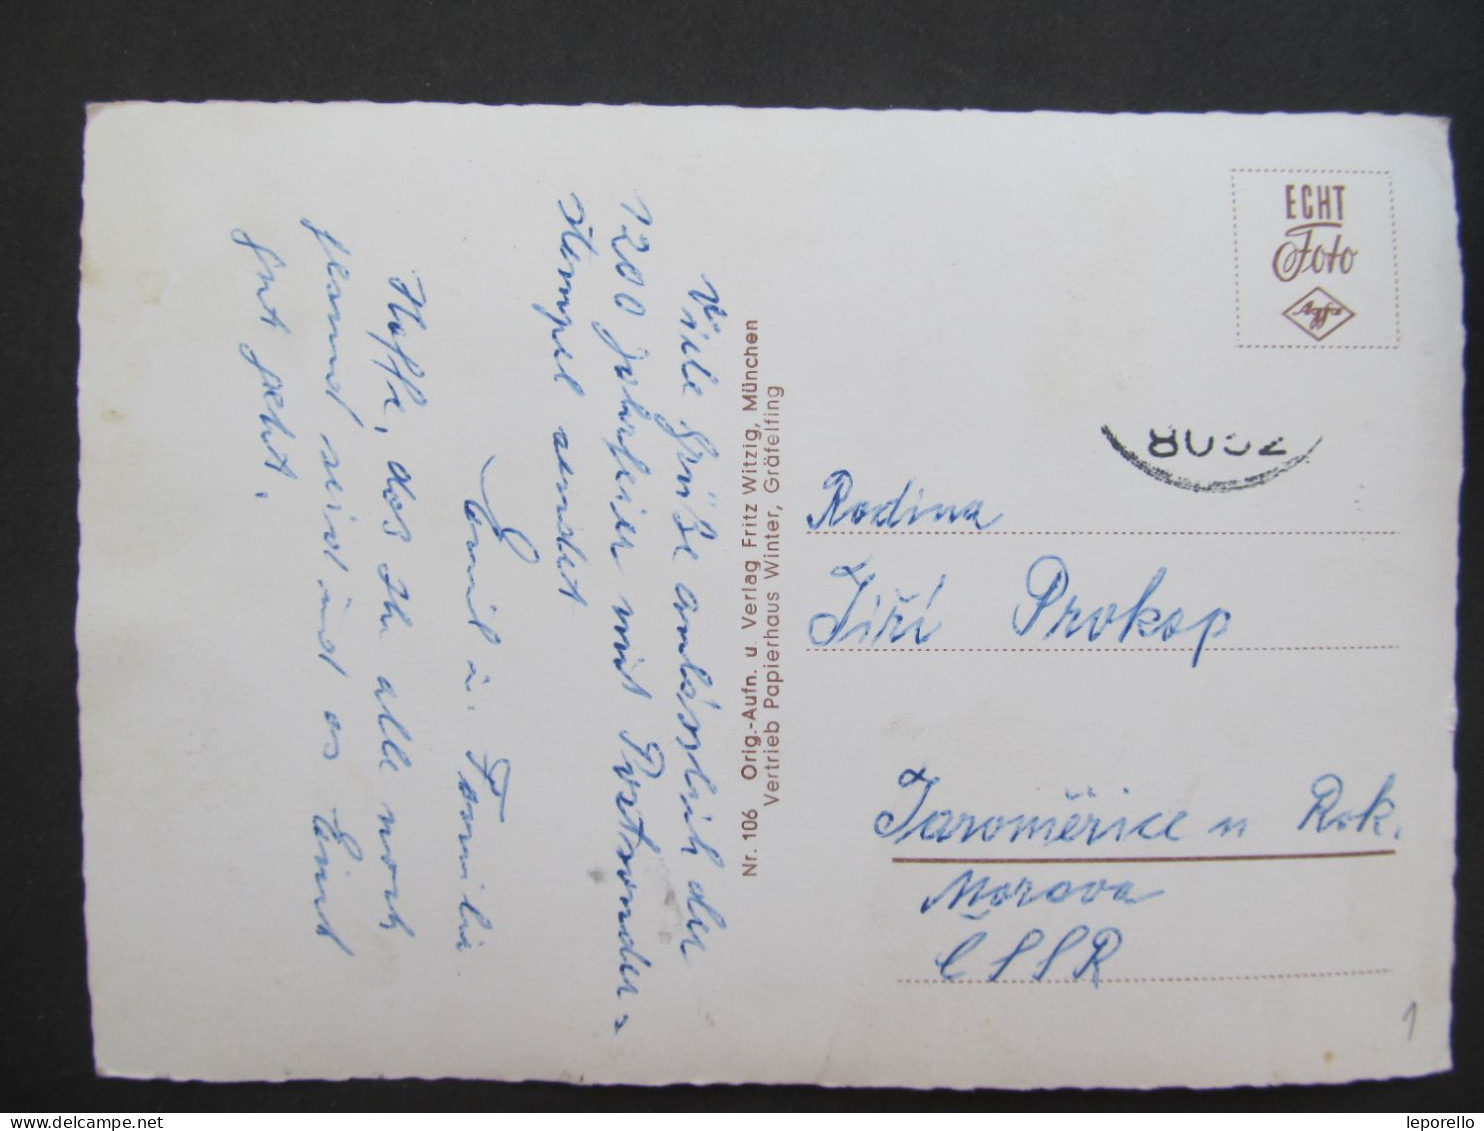 Viele Grüße anlässlich der
1200 Jahrfeier mit Postsonder=
stempel sendet
Emil u. Familie
Hoffe, das Ihr alle noch
gesund seid und es Euch
gut geht.
Nr. 106 Orig.-Aufn. u. Verlag Fritz Witzig, München
Vertrieb Papierhaus Winter, Gräfelfing
ECHT
Foto
Agfa
8032
Rodina
Jiří Prokop
Jaroměřice n Rok.
Morava
ČSSR
1
leporello